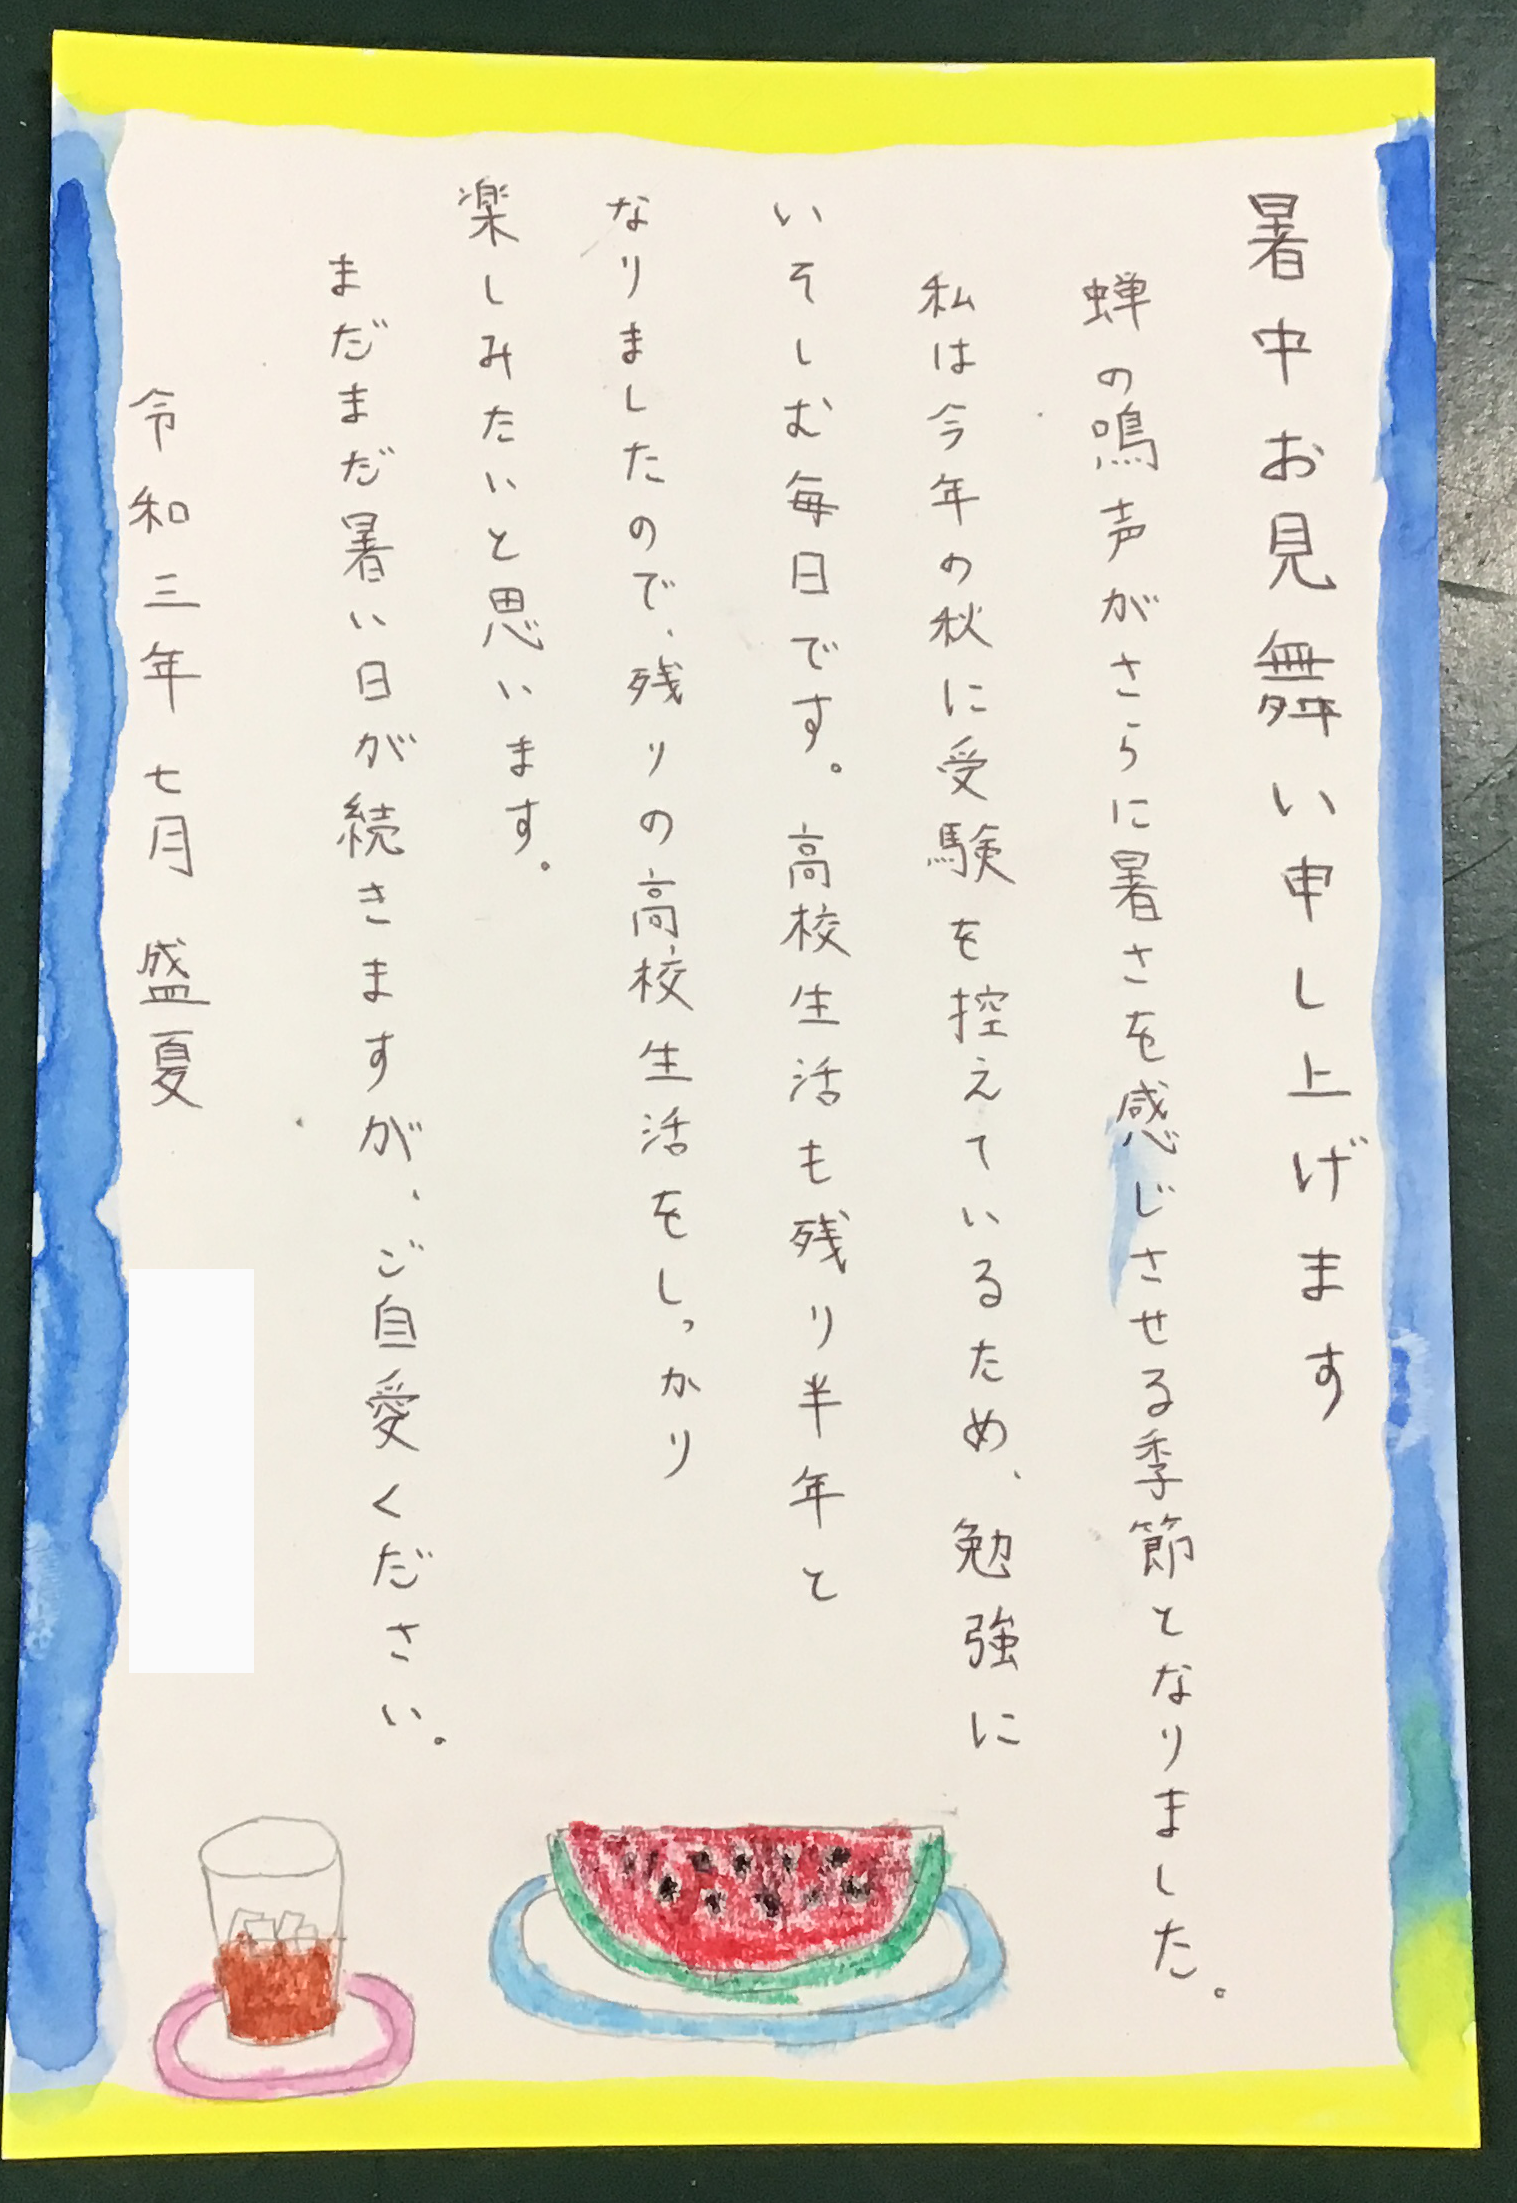 暑中お見舞い申し上げます
蝉の鳴声がさらに暑さを感じさせる季節となりました。
私は今年の秋に受験を控えているため、勉強に
いそしむ毎日です。高校生活も残り半年と
なりましたので、残りの高校生活をしっかり
楽しみたいと思います。
まだまだ暑い日が続きますが、ご自愛ください。
令和三年七月 盛夏